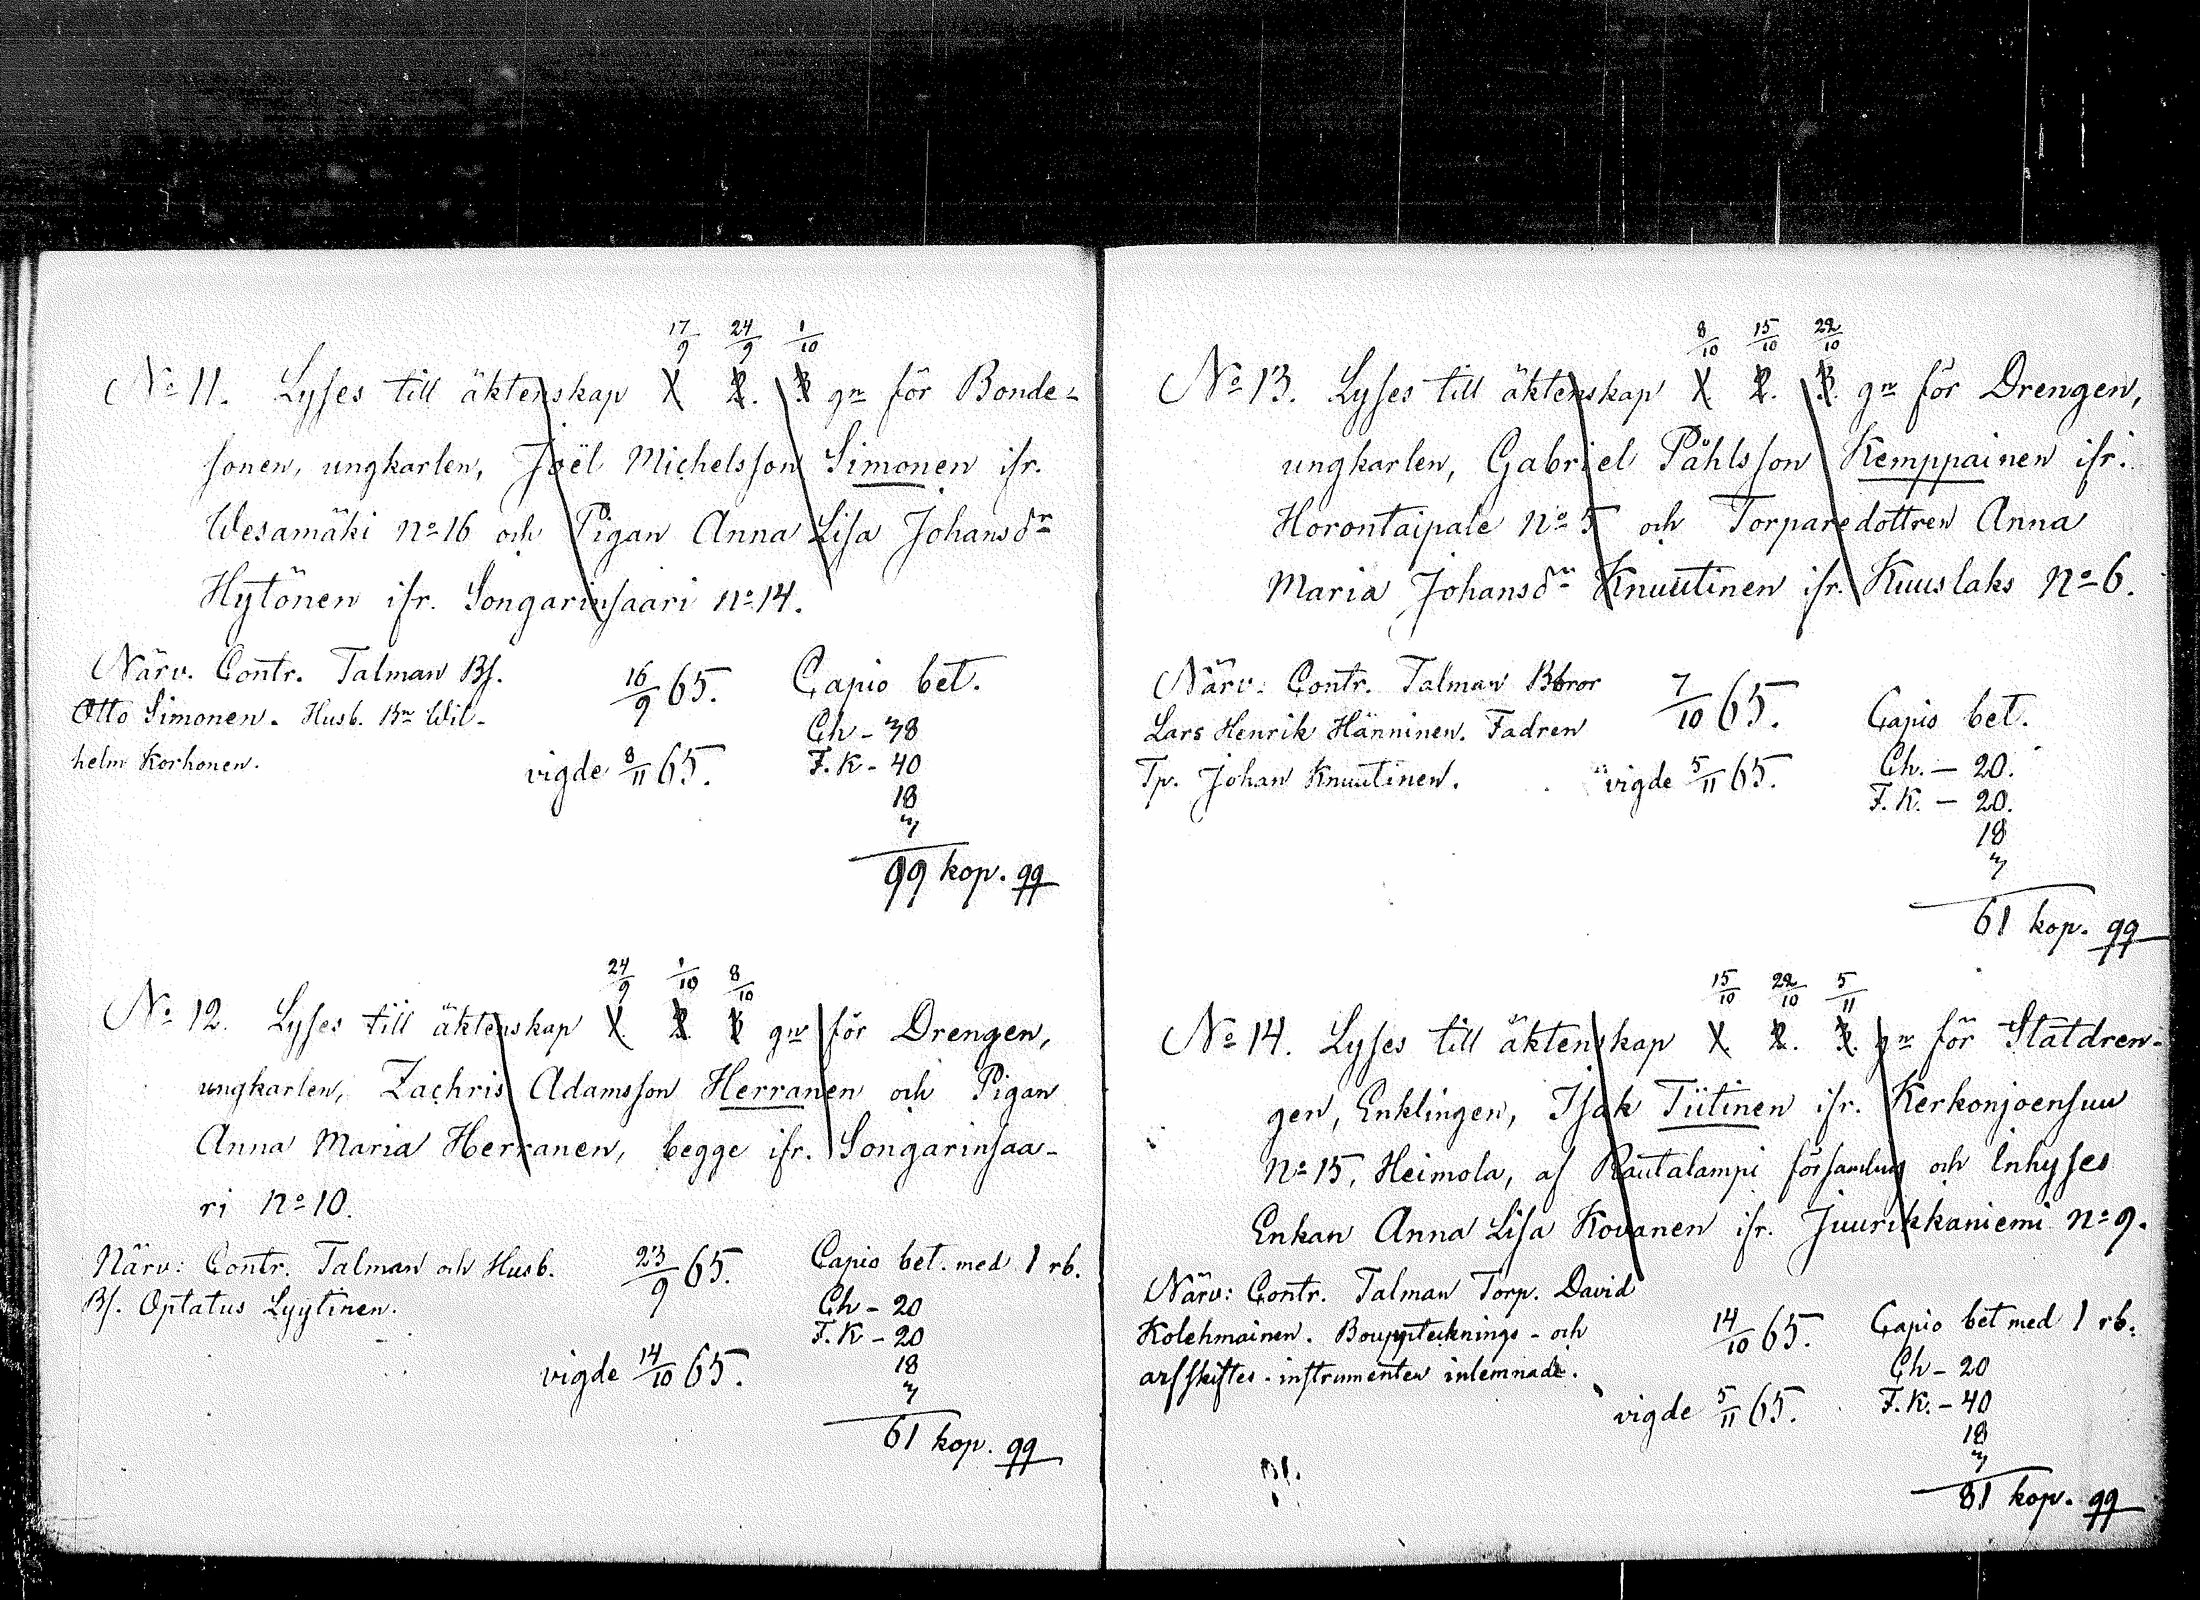 17/9 24/9 1/10
No 11. Lyses till äktenskap 1. 2. 3. gn för Bonde-
sonen, ungkarlen, Joël Michelsson Simonen ifr.
Wesamäki No 16 och Pigan Anna Lisa Johansdr
Hytönen ifr. Songarinsaari No 14.
Närv. Contr. Talman Bs.
Otto Simonen. Husb. Bn Wil-
helm Korhonen.
16/9 65.
vigde 8/11 65.
Capio bet.
Ch - 38
F.K - 40
18
3
99 kop. 99
24/9 1/10 8/10
No 12. Lyses till äktenskap 1 2 3 gn för Drengen,
ungkarlen, Zachris Adamsson Herranen och Pigan
Anna Maria Herranen, begge ifr. Songarinsaa-
ri No 10.
Närv: Contr. Talman och Husb.
Bs. Optatus Lyytinen.
23/9 65.
vigde 14/10 65.
Capio bet. med 1 rb.
Ch - 20
F.K - 20
18
3
61 kop. 99
8/10 15/10 22/10
No 13. Lyses till äktenskap 1. 2. 3. gn för Drengen,
ungkarlen, Gabriel Påhlsson Kemppainen ifr.
Horontaipale No 5 och Torparedottren Anna
Maria Johansdr Knuutinen ifr. Kuuslaks No 6.
Närv: Contr. Talman Bbror
Lars Henrik Hänninen. Fadren
Tp. Johan Knuutinen.
7/10 65.
vigde 5/11 65.
Capio bet.
Ch. - 20.
F.K. - 20.
18
3
61 kop. 99
15/10 22/10 5/11
No 14. Lyses till äktenskap 1. 2. 3. gn för Statdren-
gen, Enklingen, Isak Tiitinen ifr. Kerkonjoensuu
No 15, Heimola, af Rautalampi församling och Inhyses
Enkan Anna Lisa Kovanen ifr. Juurikkaniemi No 9.
Närv: Contr. Talman Torp. David
Kolehmainen. Bouppteknings- och
arfskiftes-instrumenten inlemnade.
14/10 65.
vigde 5/11 65.
Capio bet med 1 rb.
Ch - 20
F.K. - 40
18
3
81 kop. 99